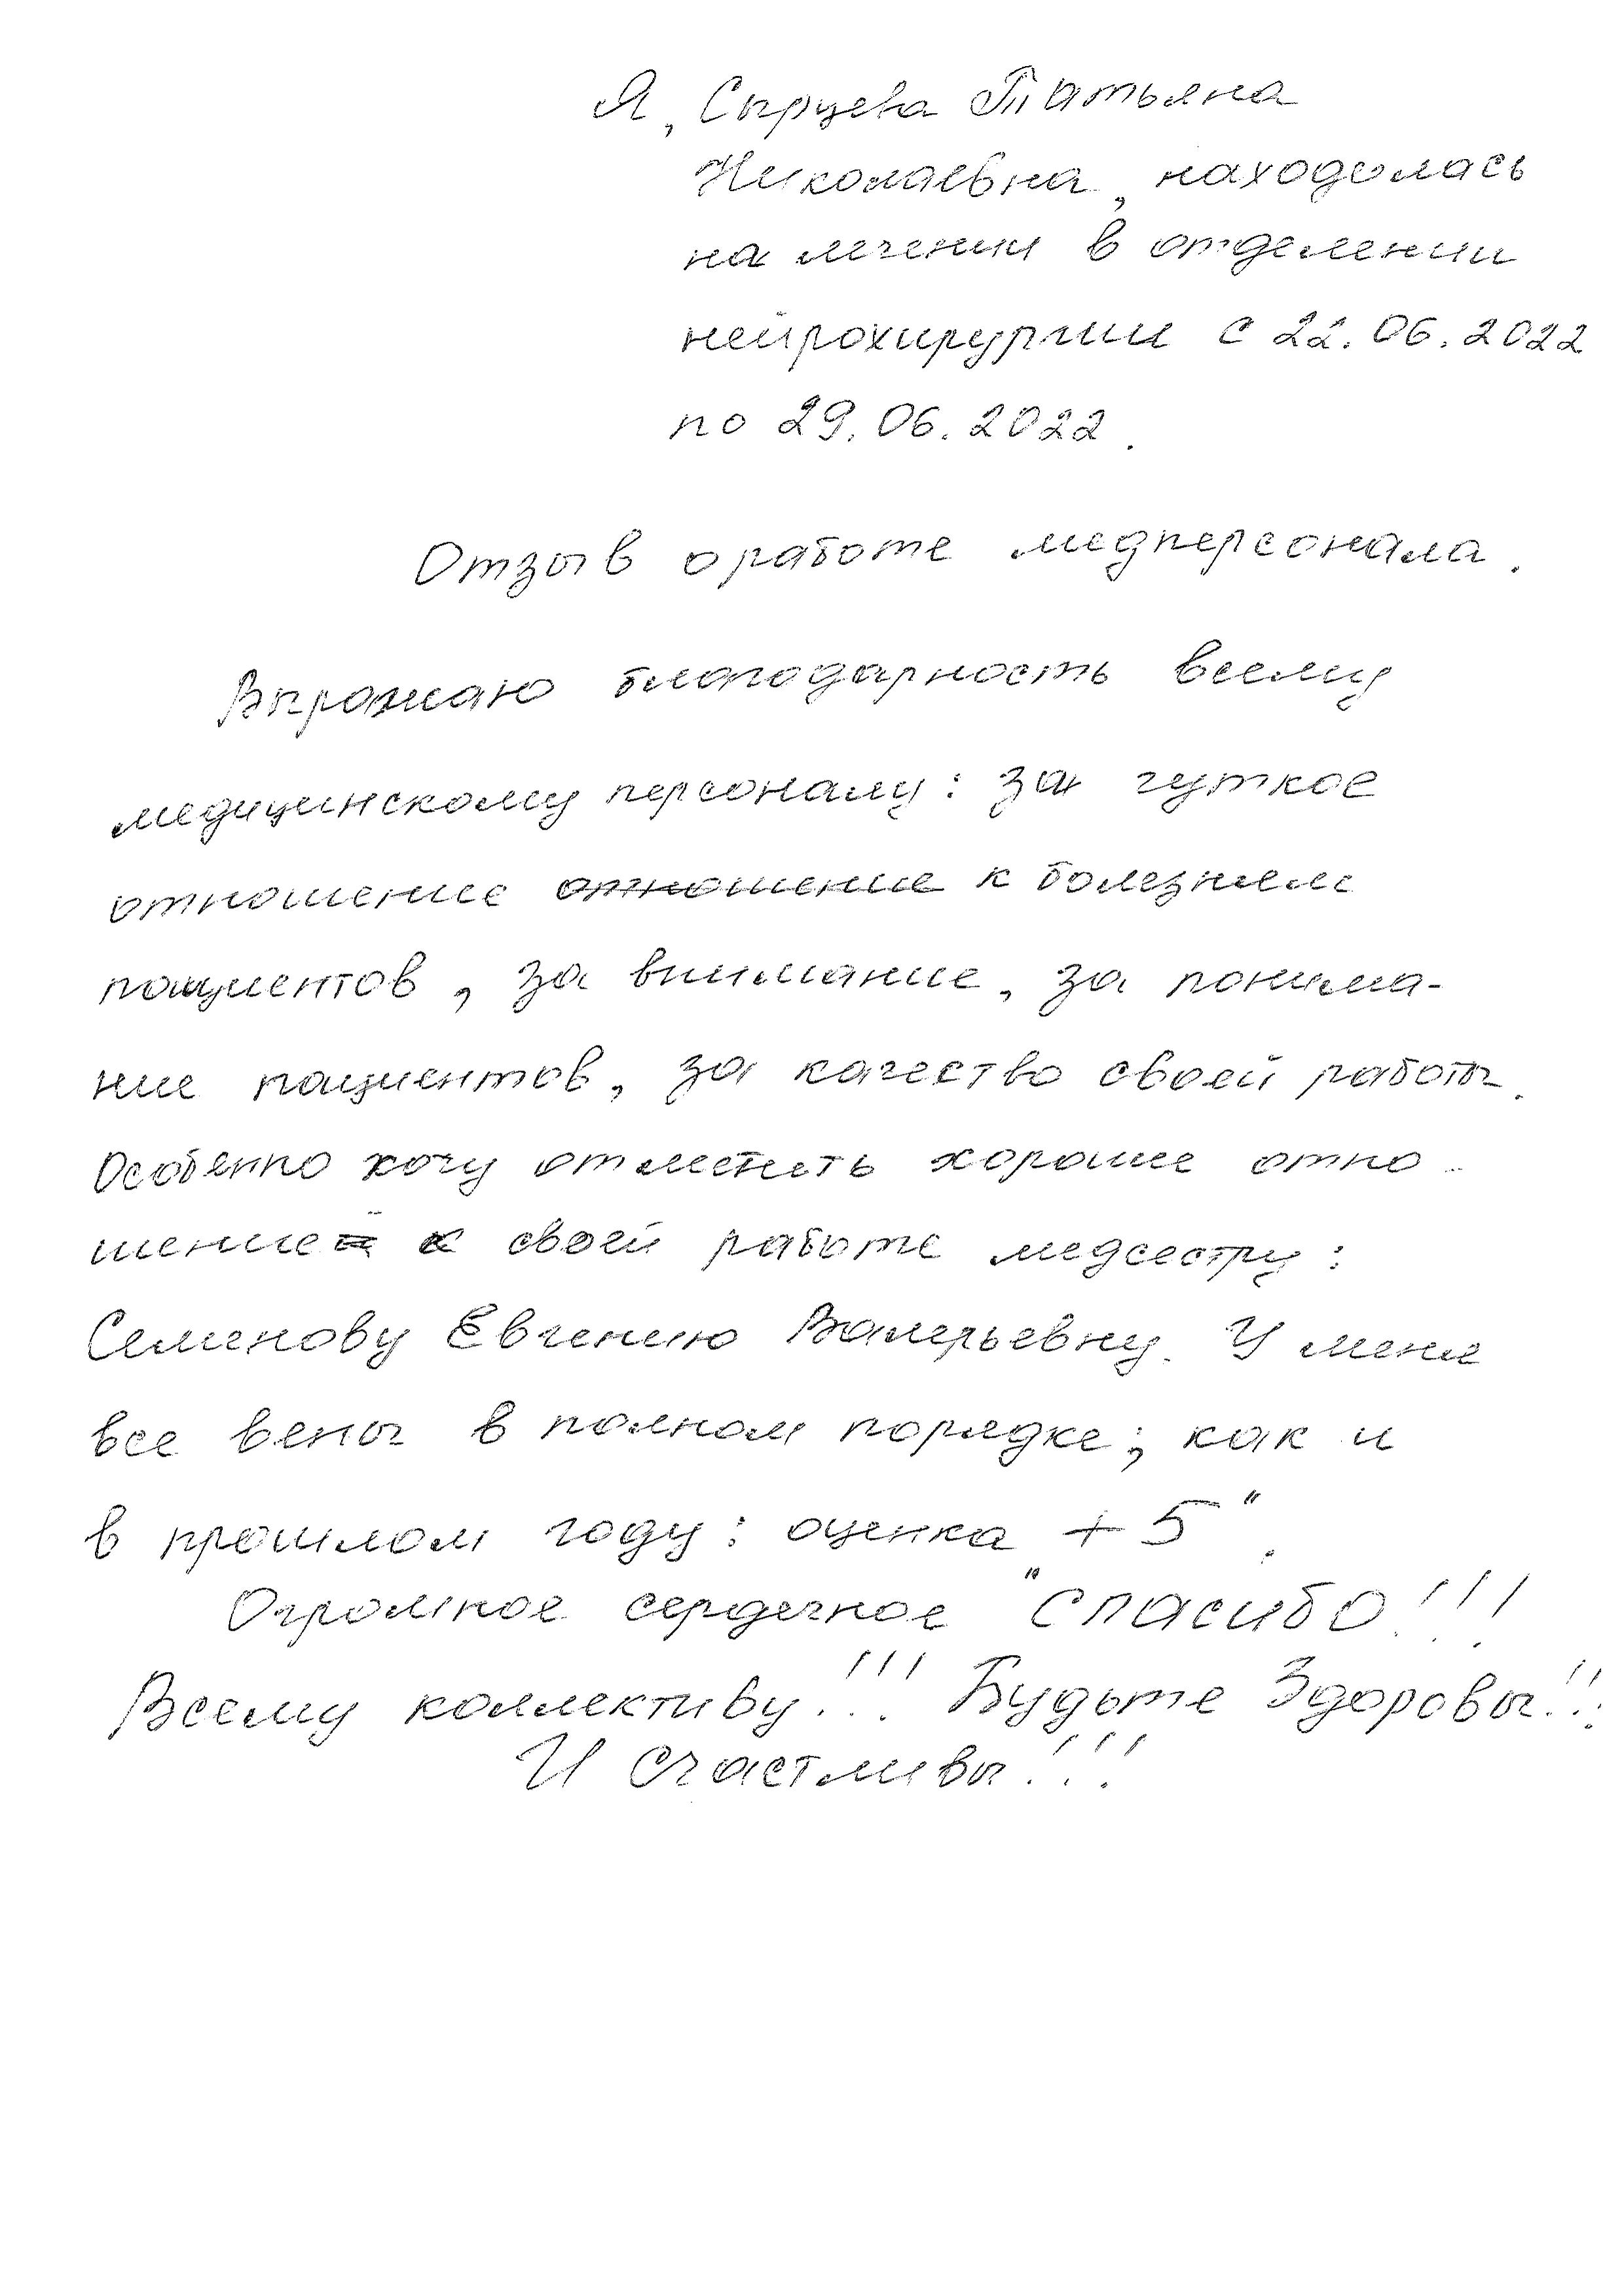 Я, Сырцева Татьяна
Николаевна, находилась
на лечении в отделении
нейрохирургии с 22.06.2022
по 29.06.2022.
Отзыв о работе медперсонала.
Выражаю благодарность всему
медицинскому персоналу: за чуткое
отношение отношение к болезням
пациентов, за внимание, за понима-
ние пациентов, за качество своей работы.
Особенно хочу отметить хорошее отно-
шение к своей работе медсестру:
Семенову Евгению Валерьевну. У меня
все вены в полном порядке; как и
в прошлом году: оценка +5".
Огромное сердечное "Спасибо!!!
Всему коллективу!!! Будьте Здоровы!!!
И счастливы!!!